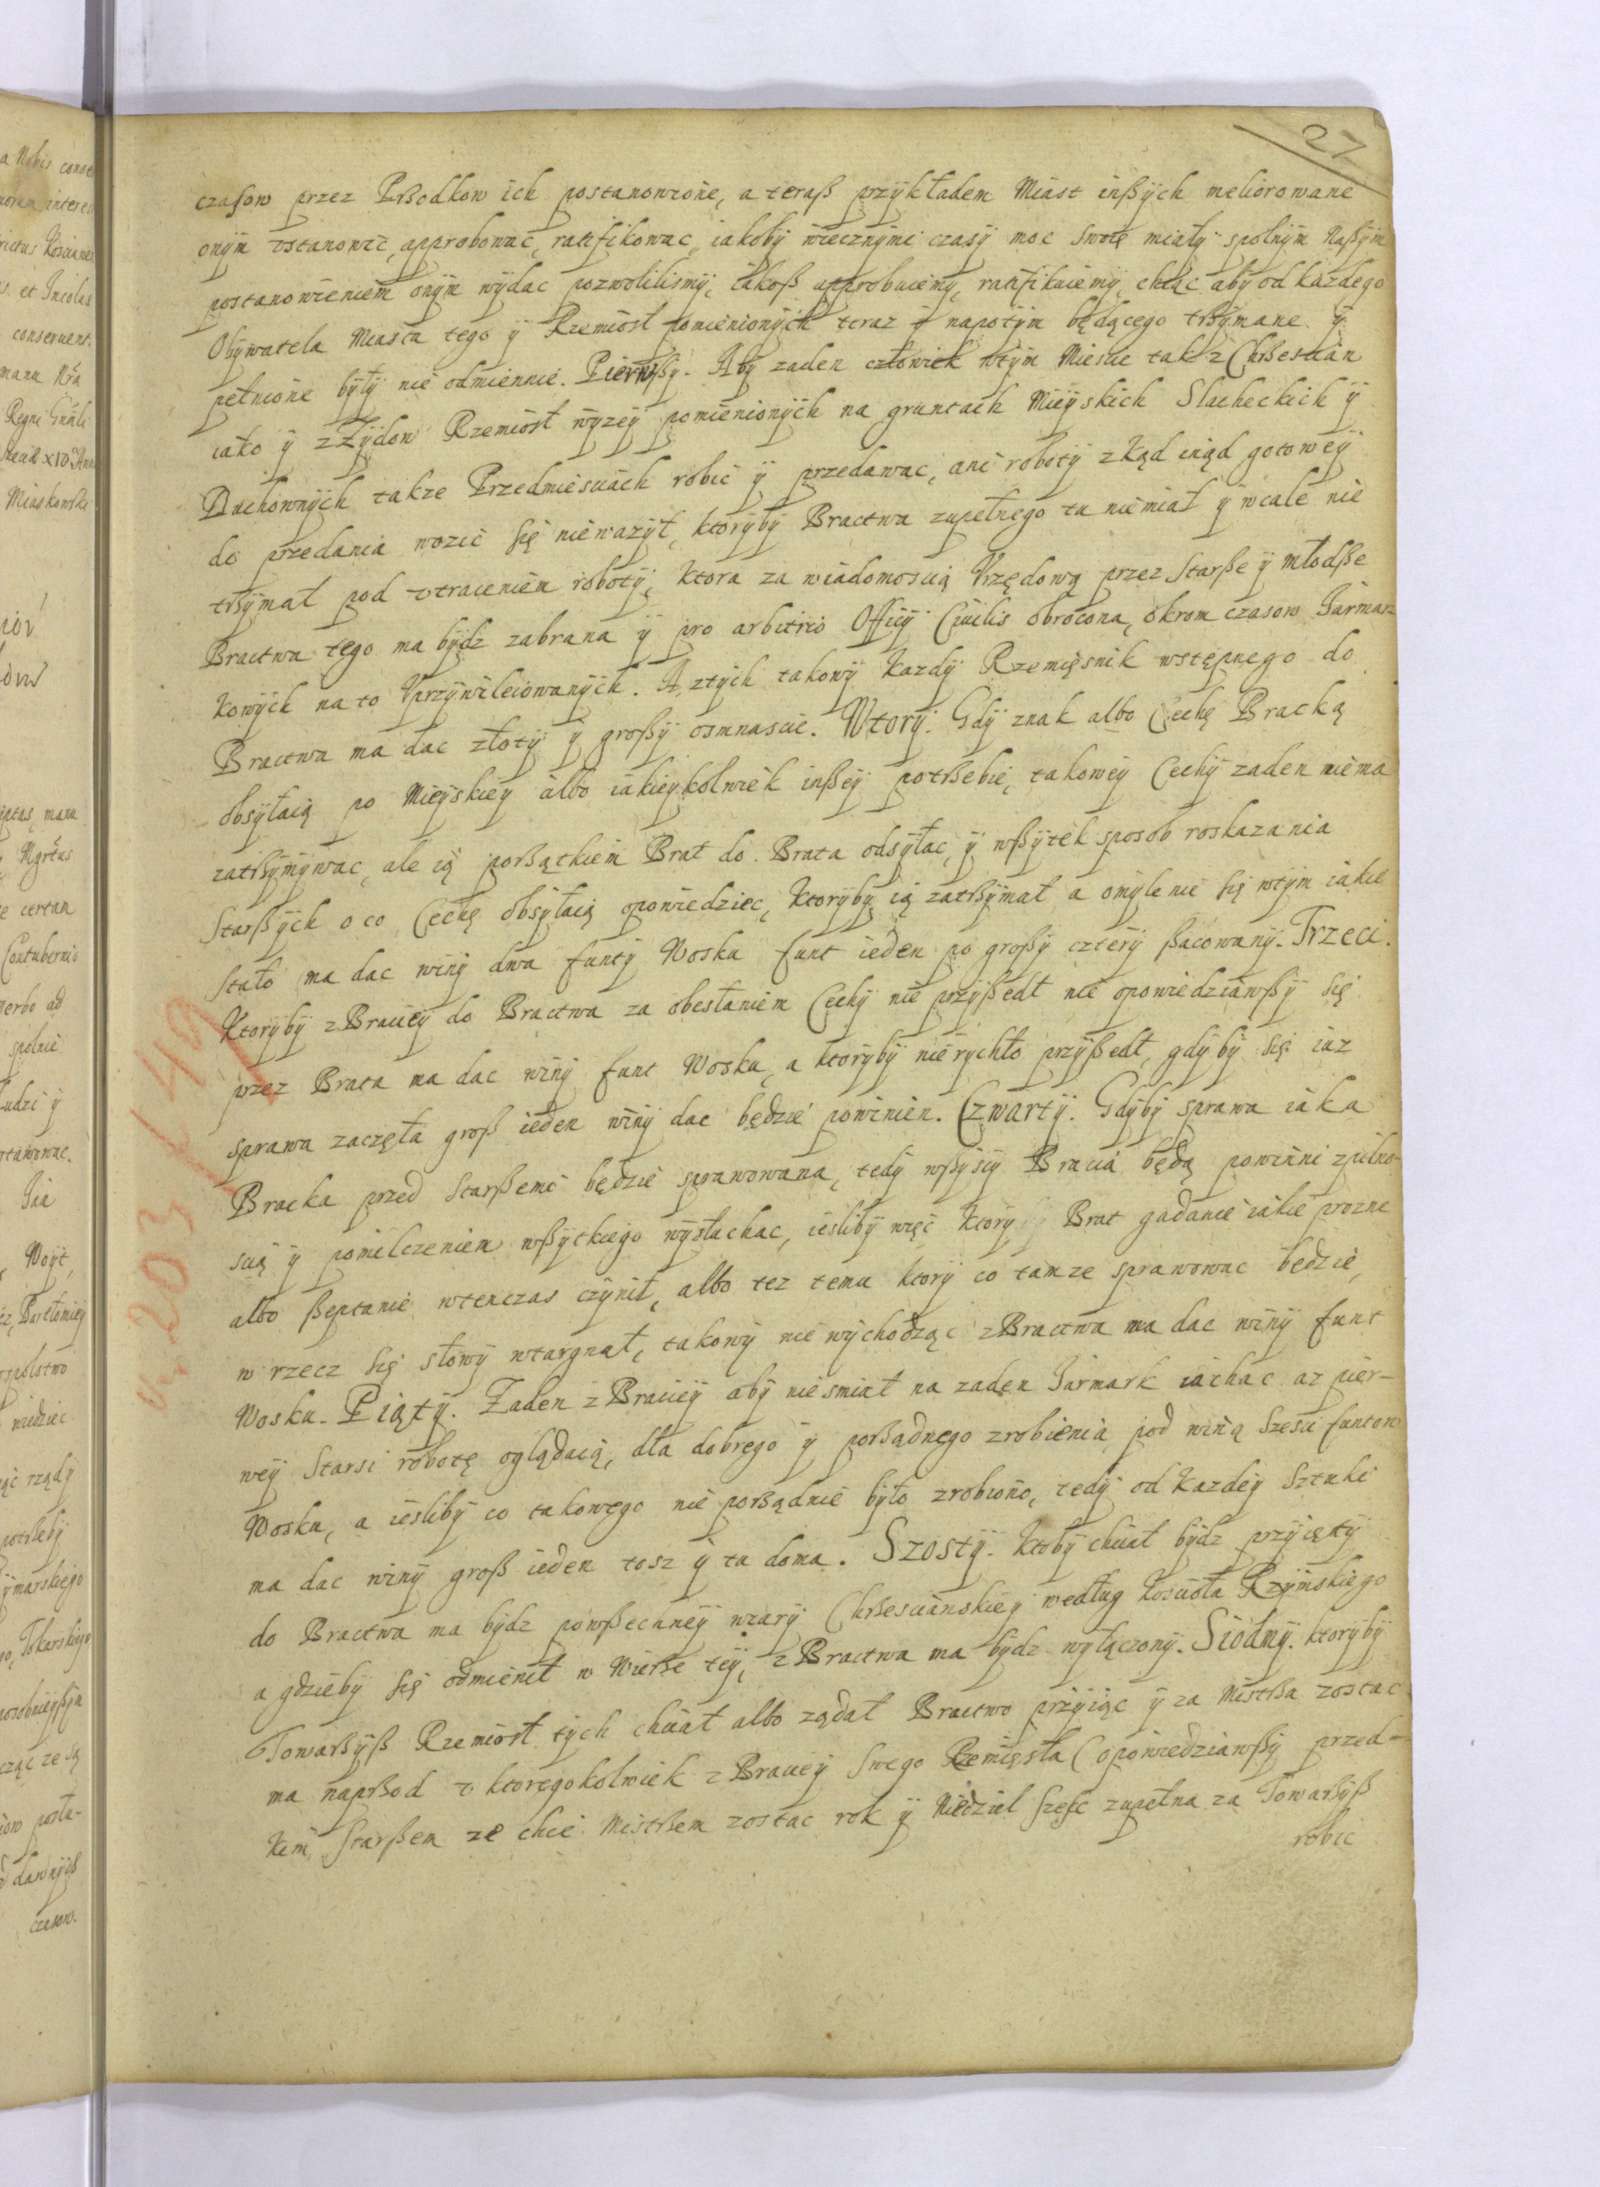 27
czasow przez Prßodkow ich postanowione, a teraß przykładem Miast inßÿch meliorowane
onÿm vstanowic, approbowac, ratifikowac, iakobÿ wiecznÿmi czasÿ moc swoię miałÿ spolnÿm Naßÿm
postanowieniem onÿm wÿdac pozwolilismÿ, iakoß approbuiemÿ, ratifikuiemÿ, chcąc abÿ od każdego
Obÿwatela Miasta tego ÿ Rzemiosł pomienionÿch teraz ÿ napotÿm będącego trßÿmane ÿ
pełnione bÿłÿ nie odmiennie. Pierwßÿ. Abÿ zaden człowiek wtÿm Miescie tak z Chrßescian
iako ÿ z Zÿdow Rzemiosł wÿzeÿ pomienionÿch na gruntach Mieÿskich Slacheckich ÿ
Duchownÿch takze Przedmiesciach robic ÿ przedawac, ani robotÿ zkąd inąd gotoweÿ
do przedania wozic się niewazÿł, ktorÿbÿ Bractwa zupełnego tu niemiał ÿ wcale nie
trßÿmał pod vtraceniem robotÿ, ktora za wiadomoscią Vrzędową przez Starße ÿ młodße
Bractwa tego ma bÿdz zabrana ÿ pro arbitrio Officÿ Ciuilis obrocona, okrom czasow Jarmar-
kowÿch na to Vprzÿwileiowanÿch. A ztÿch takowÿ Kazdÿ Rzemięsnik wstępnego do
Bractwa ma dac złotÿ ÿ großÿ osmnascie. Wtorÿ. Gdÿ znak albo Cechę Bracką
obsÿłaią po Mieÿskieÿ albo iakieÿkolwiek inßeÿ potrßebie, takoweÿ Cechÿ zaden niema
zatrßÿmÿwac, ale ią porßątkiem Brat do Brata odsÿłac, ÿ wßÿtek sposob roskazania
Starßÿch o co Cechę obsÿłaią opowiedziec, Ktorÿbÿ ią zatrßÿmał a omÿlenie się wtÿm iakie
stało ma dac winÿ dwa funtÿ Wosku funt ieden po großÿ czterÿ ßacowanÿ. Trzeci.
Ktorÿbÿ z Bracieÿ do Bractwa za obesłaniem Cechÿ nie przÿßedł nie opowiedziawßÿ się
przez Brata ma dac winÿ funt Wosku, a ktorÿbÿ nierÿchło przÿßedł, gdÿbÿ się iaz
sprawa zaczęła groß ieden winÿ dac będzie powinien. Czwartÿ. Gdÿbÿ sprawa iaka
Bracka przed Starßemi będzie sprawowana, tedÿ wßÿscÿ Bracia będą powinni zpilno-
scią ÿ pomilczeniem wßÿtkiego wÿsłuchac, iesliby więc Ktorÿ Brat gadanie iakie prozne
albo ßeptanie wtenczas czÿnił, albo tez temu ktorÿ co tamze sprawowac bedzie,
w rzecz się słowÿ wtargnał, takowÿ nie wÿchodząc z Bractwa ma dac winÿ funt
Wosku. Piątÿ. Zaden z Bracieÿ abÿ niesmiał na zaden Jarmark iachac az pier-
weÿ Starsi robotę oglądaią, dla dobrego ÿ porßądnego zrobienia pod winą Szesci funtow
Wosku, a iesliby co takowego nie porßądnie bÿło zrobiono, tedÿ od Kazdeÿ Sztuki
ma dac winÿ groß ieden tosz ÿ ta doma. Szostÿ. Ktobÿ chciał bÿdz przÿiętÿ
do Bractwa ma bÿdz powßechneÿ wiarÿ Chrßesciańskieÿ według Kosciola Rzÿmskiego
a gdziebÿ się odmienił w Wierße teÿ, z Bractwa ma bÿdz wÿłączonÿ. Siodmÿ. ktorÿbÿ
Towarßÿß Rzemiosł tÿch chciał albo ządał Bractwo przÿiąc ÿ za Mistrßa zostac
ma naprßod v ktoregokolwiek z Bracieÿ Swego Rzemięsła (opowiedziawßÿ przed-
kim Starßem ze chce Mistrßem zostac rok ÿ Niedziel szesc zupełna za Towarßÿß
robic